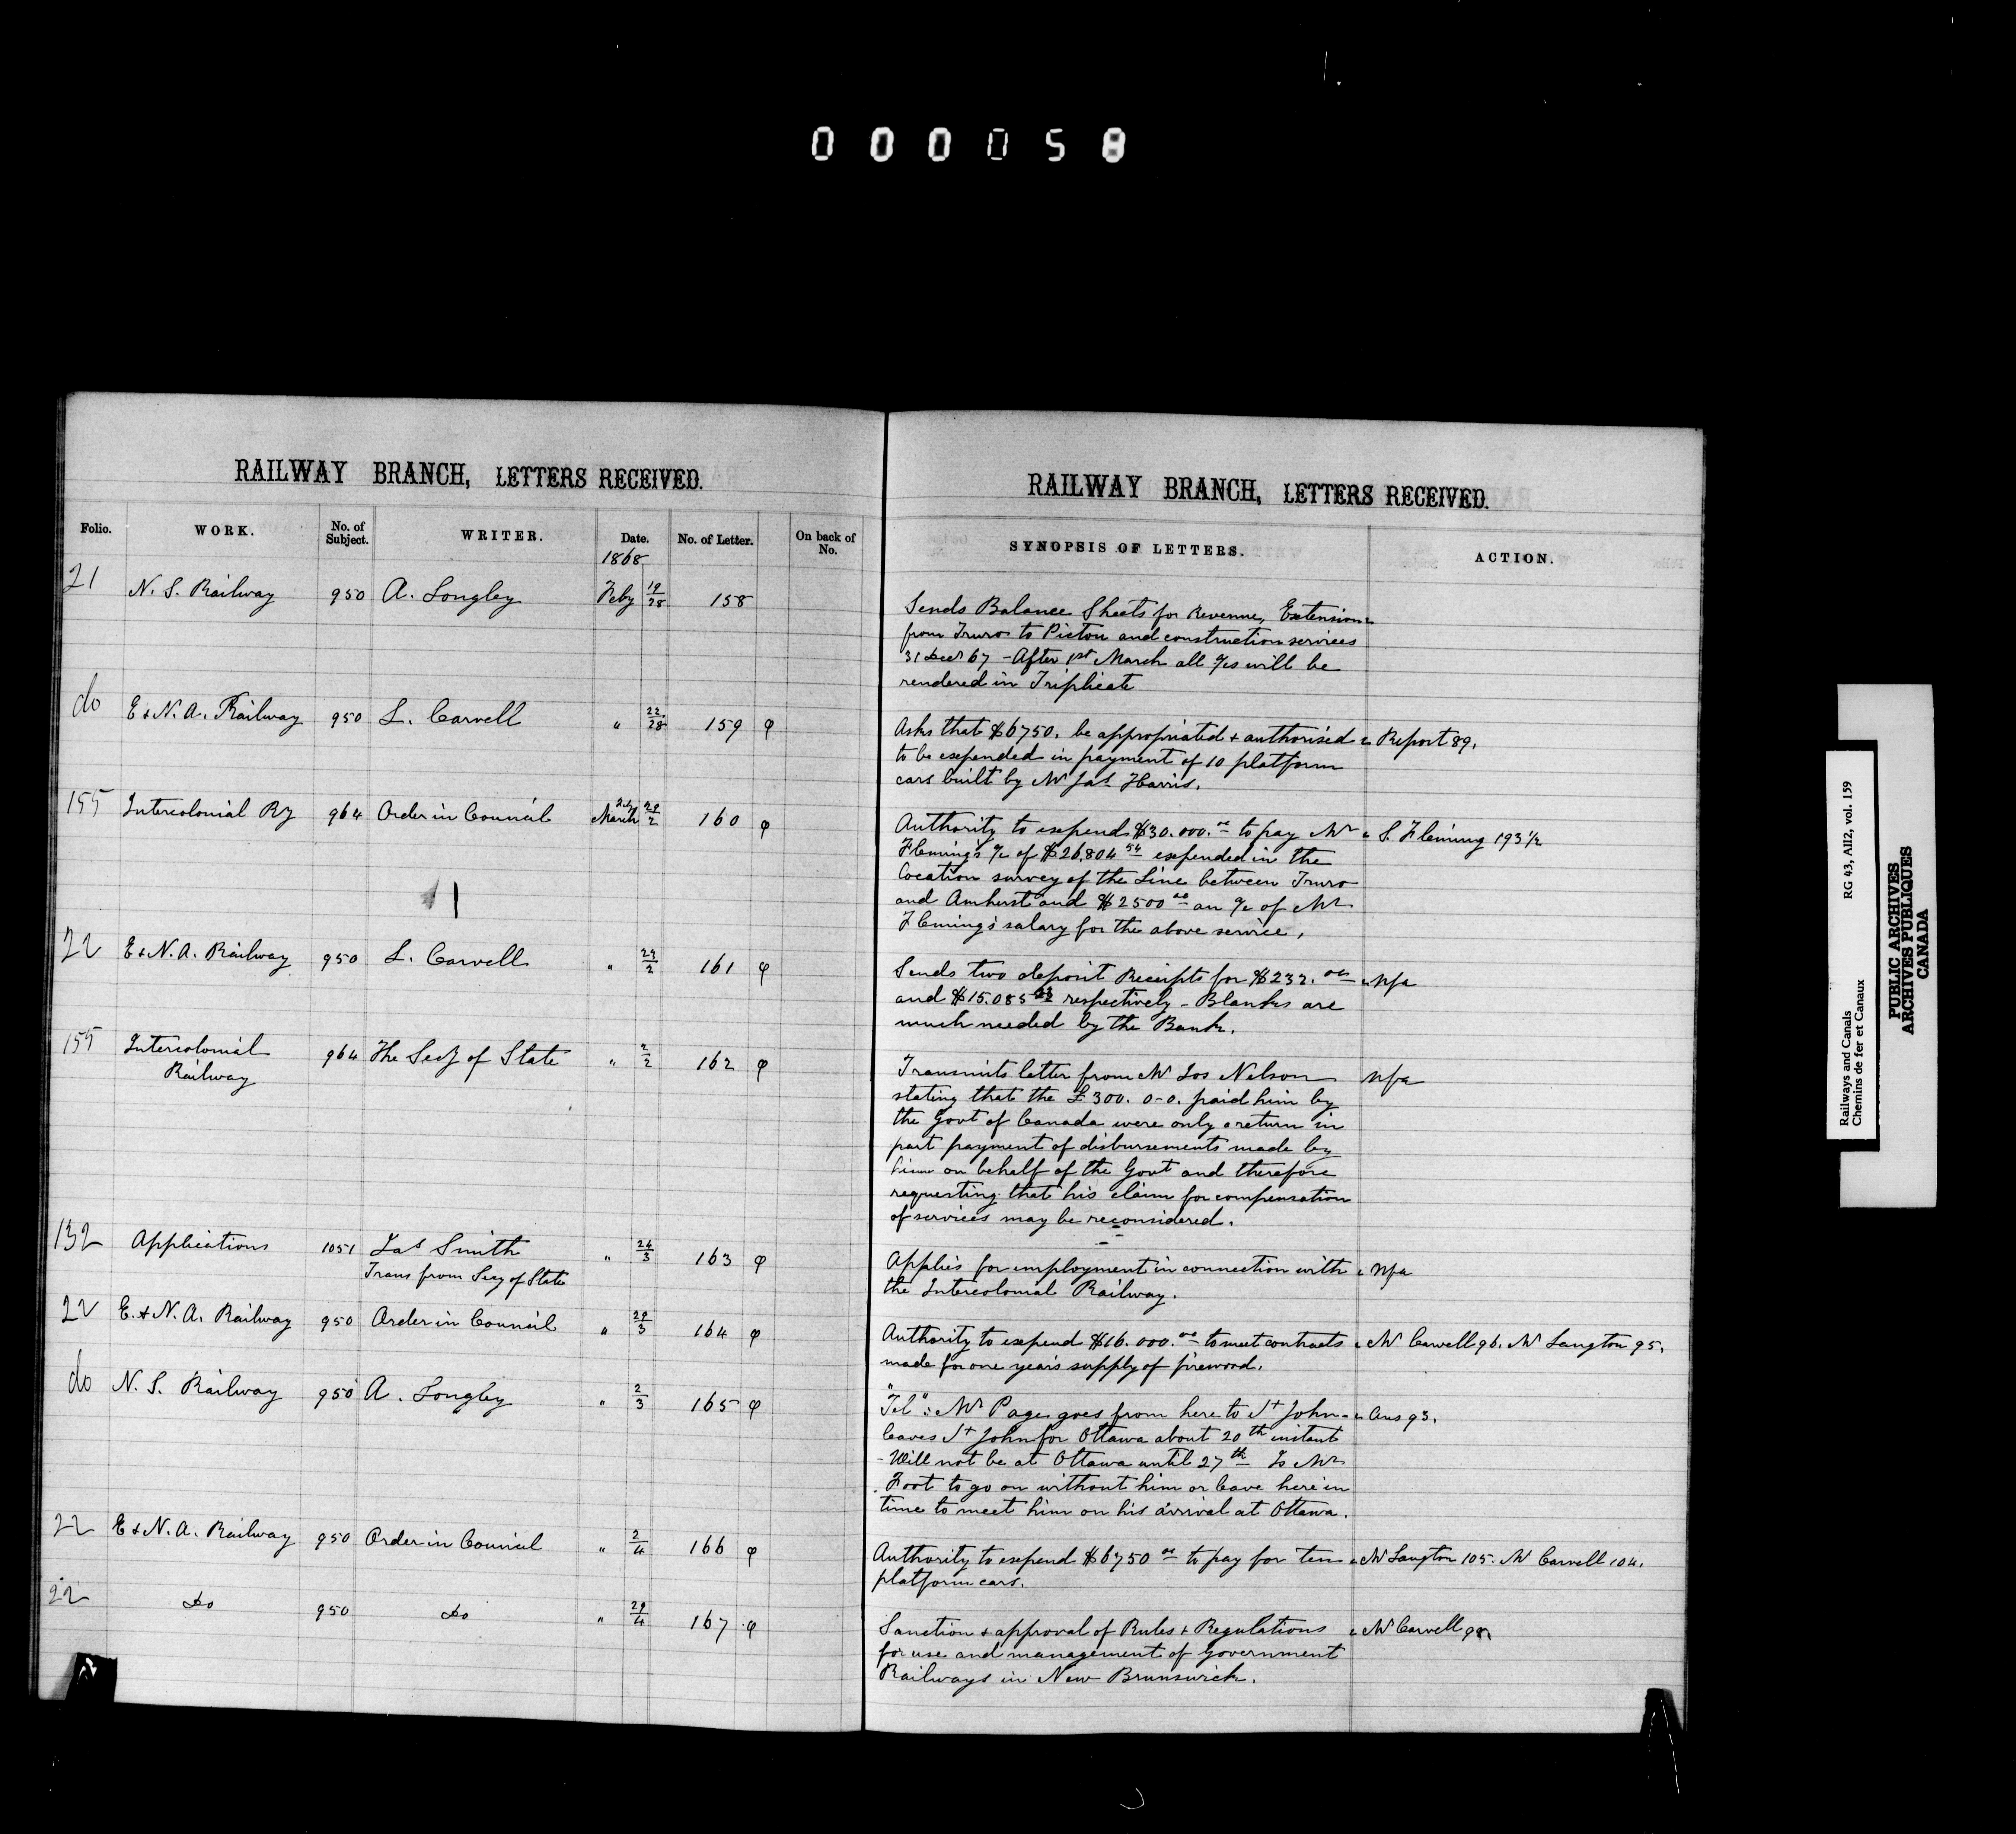 000058
RAILWAY BRANCH, LETTERS RECEIVED.
Folio. WORK. No. of Subject. WRITER. Date. No. of Letter. On back of No.
1868
21 N. S. Railway 950 A. Longley Feby 19/28 158
do E & N. A. Railway 950 L. Carvell " 22/28 159 φ
155 Intercolonial Ry 964 Order in Council Feby March 29/2 160 φ
22 E & N. A. Railway 950 L. Carvell " 27/2 161 φ
155 Intercolonial 964 The Secy of State " 2/2 162 φ
Railway
132 Applications 1051 Jas Smith " 24/3 163 φ
Trans from Secy of State
22 E. & N. A. Railway 950 Order in Council " 29/3 164 φ
do N. S. Railway 950 A. Longley " 2/3 165 φ
22 E & N. A. Railway 950 Order in Council " 2/4 166 φ
22 Do 950 Do " 29/4 167 φ
RAILWAY BRANCH, LETTERS RECEIVED.
SYNOPSIS OF LETTERS. ACTION.
Sends Balance Sheets for Revenue, Extension
from Truro to Pictou and construction services
31 Decr 67 - After 1st March all a/cs will be
rendered in Triplicate
Asks that $6750. be appropriated & authorised Report 89.
to be expended in payment of 10 platform
cars built by Mr Jas Harris.
Authority to expend $30.000.00 to pay Mr S. Fleming 193 1/2
Fleming's a/c of $26,804 54 expended in the
Location survey of the Line between Truro
and Amherst and $2500 00 on a/c of Mr
Fleming's salary for the above service,
Sends two deposit Receipts for $232. Nfa
and $15.085 respectively - Blanks are
much needed by the Bank.
Transmits letter from Mr Jos Nelson Nfa
stating that the £300. 0-0. paid him by
the Govt of Canada were only a return in
part payment of disbursements made by
him on behalf of the Govt and therefore
requesting that his claim for compensation
of services may be reconsidered.
Applies for employment in connection with Nfa
the Intercolonial Railway.
Authority to expend $16.000.00 to meet contracts Mr Carvell 96. Mr Langton 95.
made for one year's supply of firewood.
"Tel": Mr Page goes from here to St John - Ans 93.
leaves St John for Ottawa about 20th instant
- Will not be at Ottawa until 27th Is Mr
Foot to go on without him or leave here in
time to meet him on his arrival at Ottawa.
Authority to expend $6750 00 to pay for ten Mr Langton 105. Mr Carvell 104.
platform cars.
Sanction & approval of Rules & Regulations Mr Carvell
for use and management of Government
Railways in New Brunswick.
Railways and Canals RG 43, AII2, vol. 159
Chemins de fer et Canaux
PUBLIC ARCHIVES
ARCHIVES PUBLIQUES
CANADA